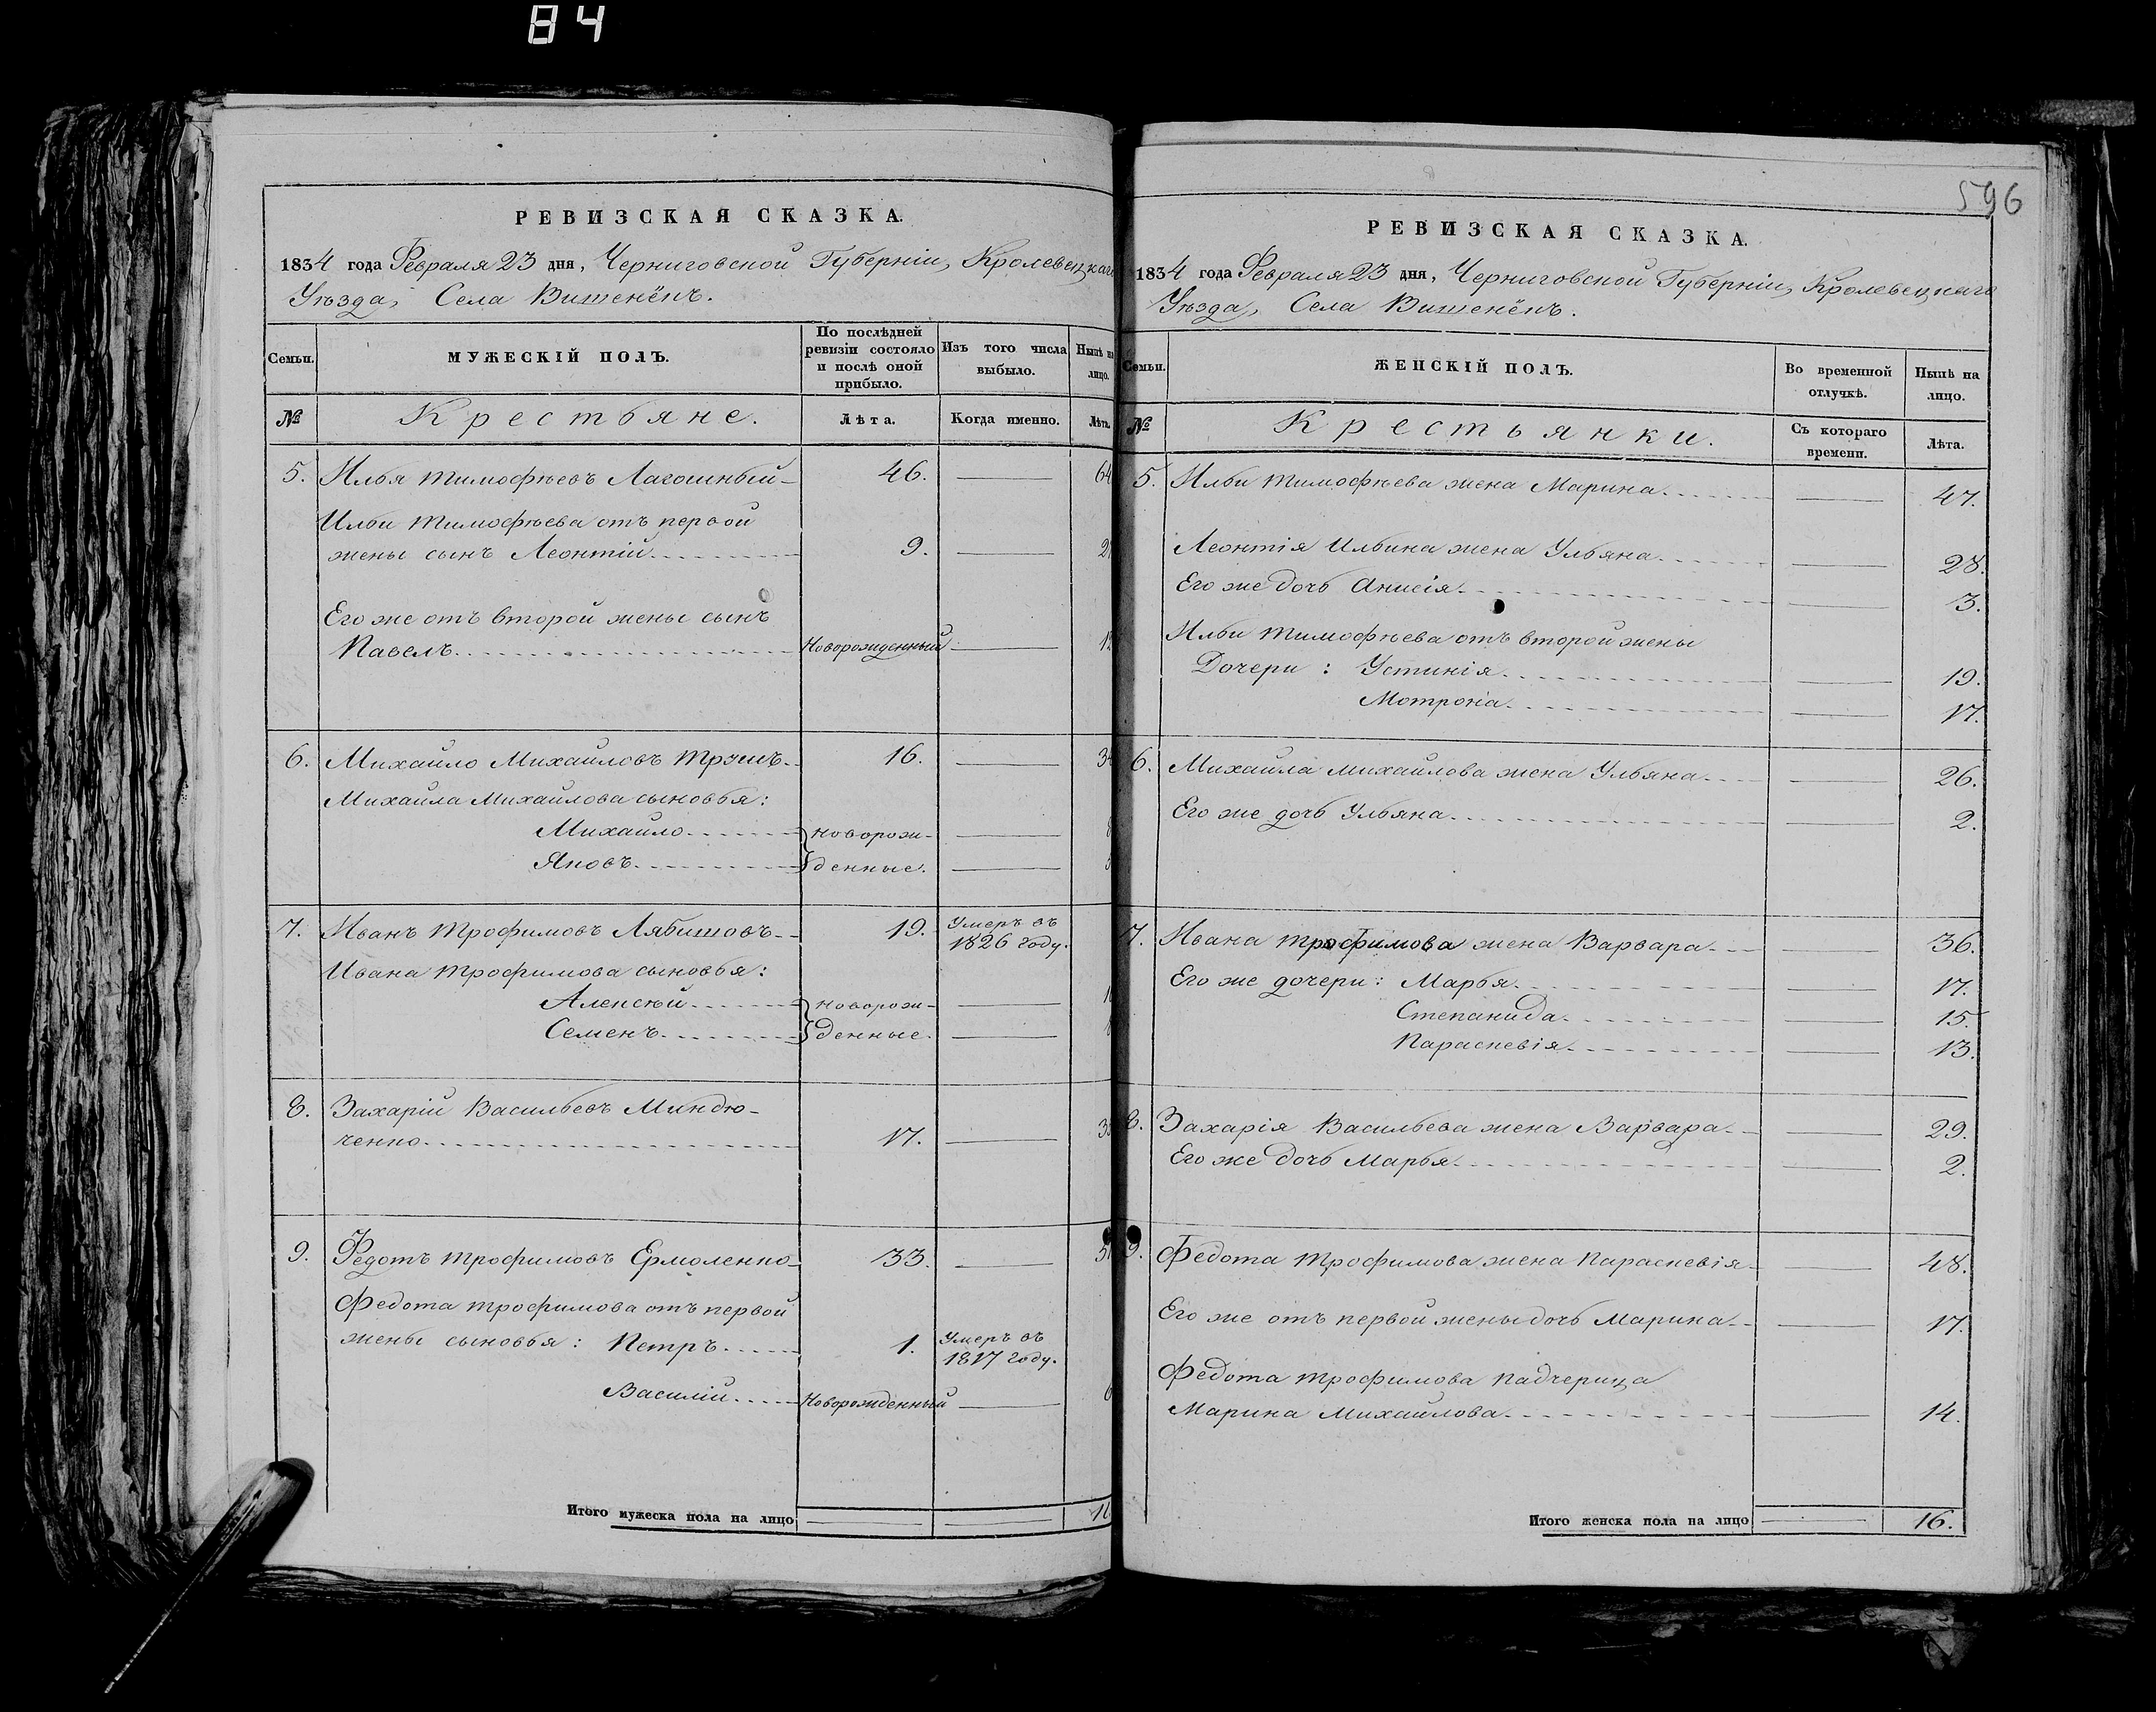 84
РЕВИЗСКАЯ СКАЗКА.
1834 года Февраля 23 дня, Черниговской Губерніи, Кролевецкаго
Уѣзда, Села Вишенёкъ.
Семьи. МУЖЕСКІЙ ПОЛЪ. По послѣдней ревизіи состояло и послѣ оной прибыло. Изъ того числа выбыло. Нынѣ на лицо.
№ Крестьяне. Лѣта. Когда именно. Лѣта.
5. Илья Тимофѣевъ Лагошный 46. 64
Ильи Тимофѣева отъ первой
жены сынъ Леонтій 9.
Его же отъ второй жены сынъ
Павелъ Новорожденный 12
6. Михайло Михайловъ Трушъ 16. 34
Михайла Михайлова сыновья:
Михайло Новорож-
Яковъ денные.
7. Иванъ Трофимовъ Лябишовъ 19. Умеръ въ
1826 году.
Ивана Трофимова сыновья:
Алексѣй Новорож-
Семенъ денные.
8. Захарій Васильевъ Миндю-
ченко 17. 35
9. Федотъ Трофимовъ Ермоленко 33. 51
Федота Трофимова отъ первой
жены сыновья: Петръ 1. Умеръ въ
1817 году.
Василій Новорожденный
Итого мужеска пола на лицо
596
РЕВИЗСКАЯ СКАЗКА.
1834 года Февраля 23 дня, Черниговской Губерніи, Кролевецкаго
Уѣзда, Села Вишенёкъ.
Семьи. ЖЕНСКІЙ ПОЛЪ. Во временной отлучкѣ. Нынѣ на лицо.
№ Крестьянки. Съ котораго времени. Лѣта.
5. Ильи Тимофѣева жена Марина 47.
Леонтія Ильина жена Ульяна 28.
Его же дочь Анисія 3.
Ильи Тимофѣева отъ второй жены
Дочери: Устинія 19.
Мотрона 17.
6. Михайла Михайлова жена Ульяна 26.
Его же дочь Ульяна 2.
7. Ивана Трофимова жена Варвара 36.
Его же дочери: Марья 17.
Степанида 15.
Параскевія 13.
8. Захарія Васильева жена Варвара 29.
Его же дочь Марья 2.
9. Федота Трофимова жена Параскевія 48.
Его же отъ первой жены дочь Марина 17.
Федота Трофимова падчерица
Марина Михайлова 14.
Итого женска пола на лицо 16.